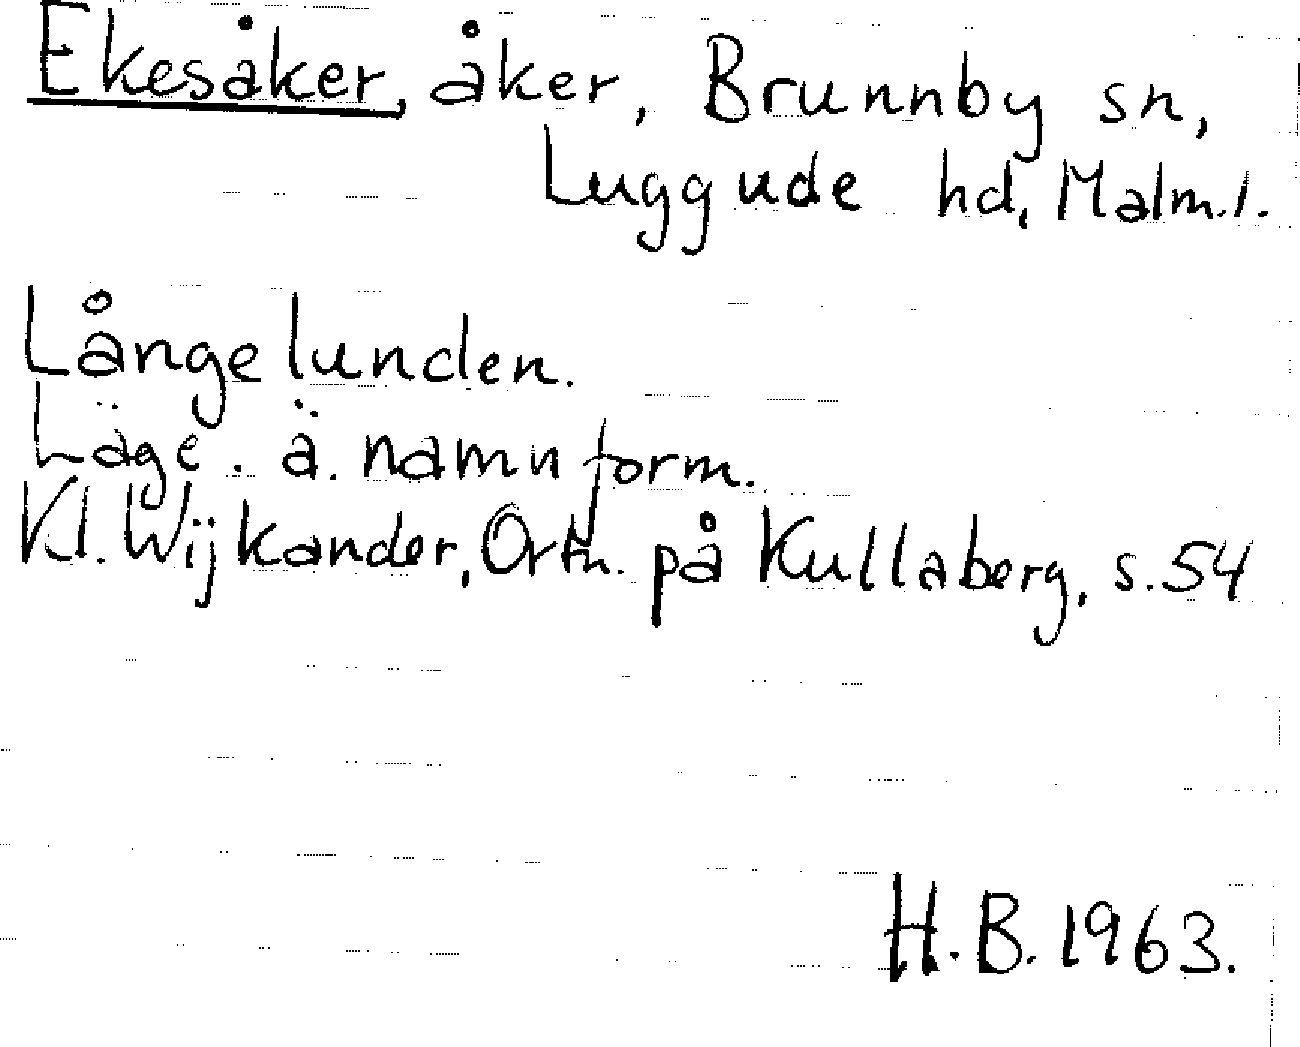 Ekesåker, åker, Brunnby sn,
Luggude hd, Malm.l.
Långelunden.
Läge. ä. namnform.
Kl. Wijkander, Ortn. på Kullaberg, s. 54
H.B. 1963.